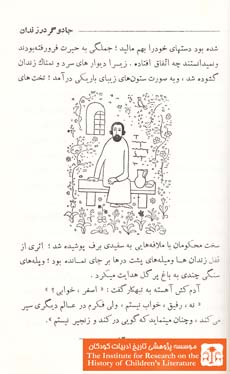 جادوگر در زندان
شده بود دستهای خودرا بهم مالید؛ جملگی به حیرت فرورفته‌بودند
ونمیدانستند چه اتفاق افتاده . زیرا دیوار های سرد و نمناك زندان
گشوده شد ، و به صورت ستون‌های زیبای باریکی درآمد ؛ تخت های
سخت محکومان با ملافه‌هایی به سفیدی برف پوشیده شد ؛ اثری از
قفل زندان ها ومیله‌های پشت درها بر جای نمانده بود ؛ وپله‌های
سنگی چندی به باغ پر گل هدایت میکرد .
آدم کش آهسته به تبهکار گفت : « اصغر ، خوابی ؟ »
« نه ، رفیق ، خواب نیستم ، ولی فکرم در عالم دیگری سیر
می کند ، وچنان مینماید که گویی در کند و زنجیر نیستم .»
موسسه پژوهشی تاریخ ادبیات کودکان
The Institute for Research on the
History of Children's Literature